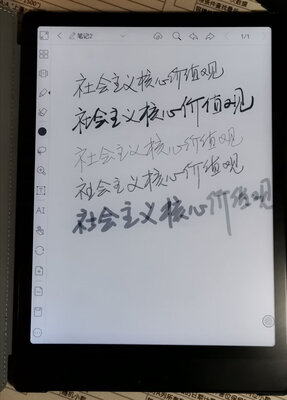 笔记2
1/1
社会主义核心价值观
社会主义核心价值观
社会主义核心价值观
社会主义核心价值观
社会主义核心价值观
AI